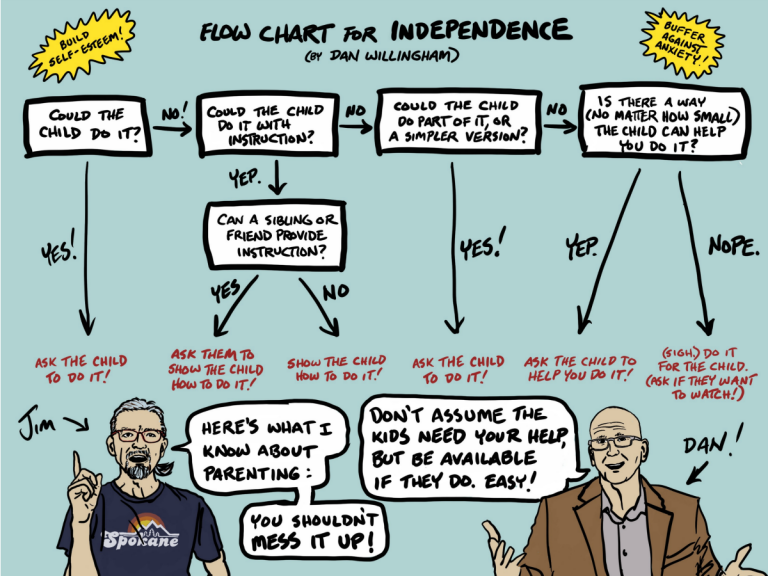 BUILD
SELF-ESTEEM!
FLOW CHART FOR INDEPENDENCE
(BY DAN WILLINGHAM)
BUFFER
AGAINST
ANXIETY!
COULD THE
CHILD DO IT?
NO!
COULD THE CHILD
DO IT WITH
INSTRUCTION?
NO
COULD THE CHILD
DO PART OF IT, OR
A SIMPLER VERSION?
NO
IS THERE A WAY
(NO MATTER HOW SMALL)
THE CHILD CAN HELP
YOU DO IT?
YEP.
CAN A SIBLING OR
FRIEND PROVIDE
INSTRUCTION?
YES!
YES
NO
YES!
YEP.
NOPE.
ASK THE CHILD
TO DO IT!
ASK THEM TO
SHOW THE CHILD
HOW TO DO IT!
SHOW THE CHILD
HOW TO DO IT!
ASK THE CHILD
TO DO IT!
ASK THE CHILD TO
HELP YOU DO IT!
(SIGH) DO IT
FOR THE CHILD.
(ASK IF THEY WANT
TO WATCH!)
JIM
HERE'S WHAT I
KNOW ABOUT
PARENTING:
YOU SHOULDN'T
MESS IT UP!
DON'T ASSUME THE
KIDS NEED YOUR HELP,
BUT BE AVAILABLE
IF THEY DO. EASY!
DAN!
Spokane